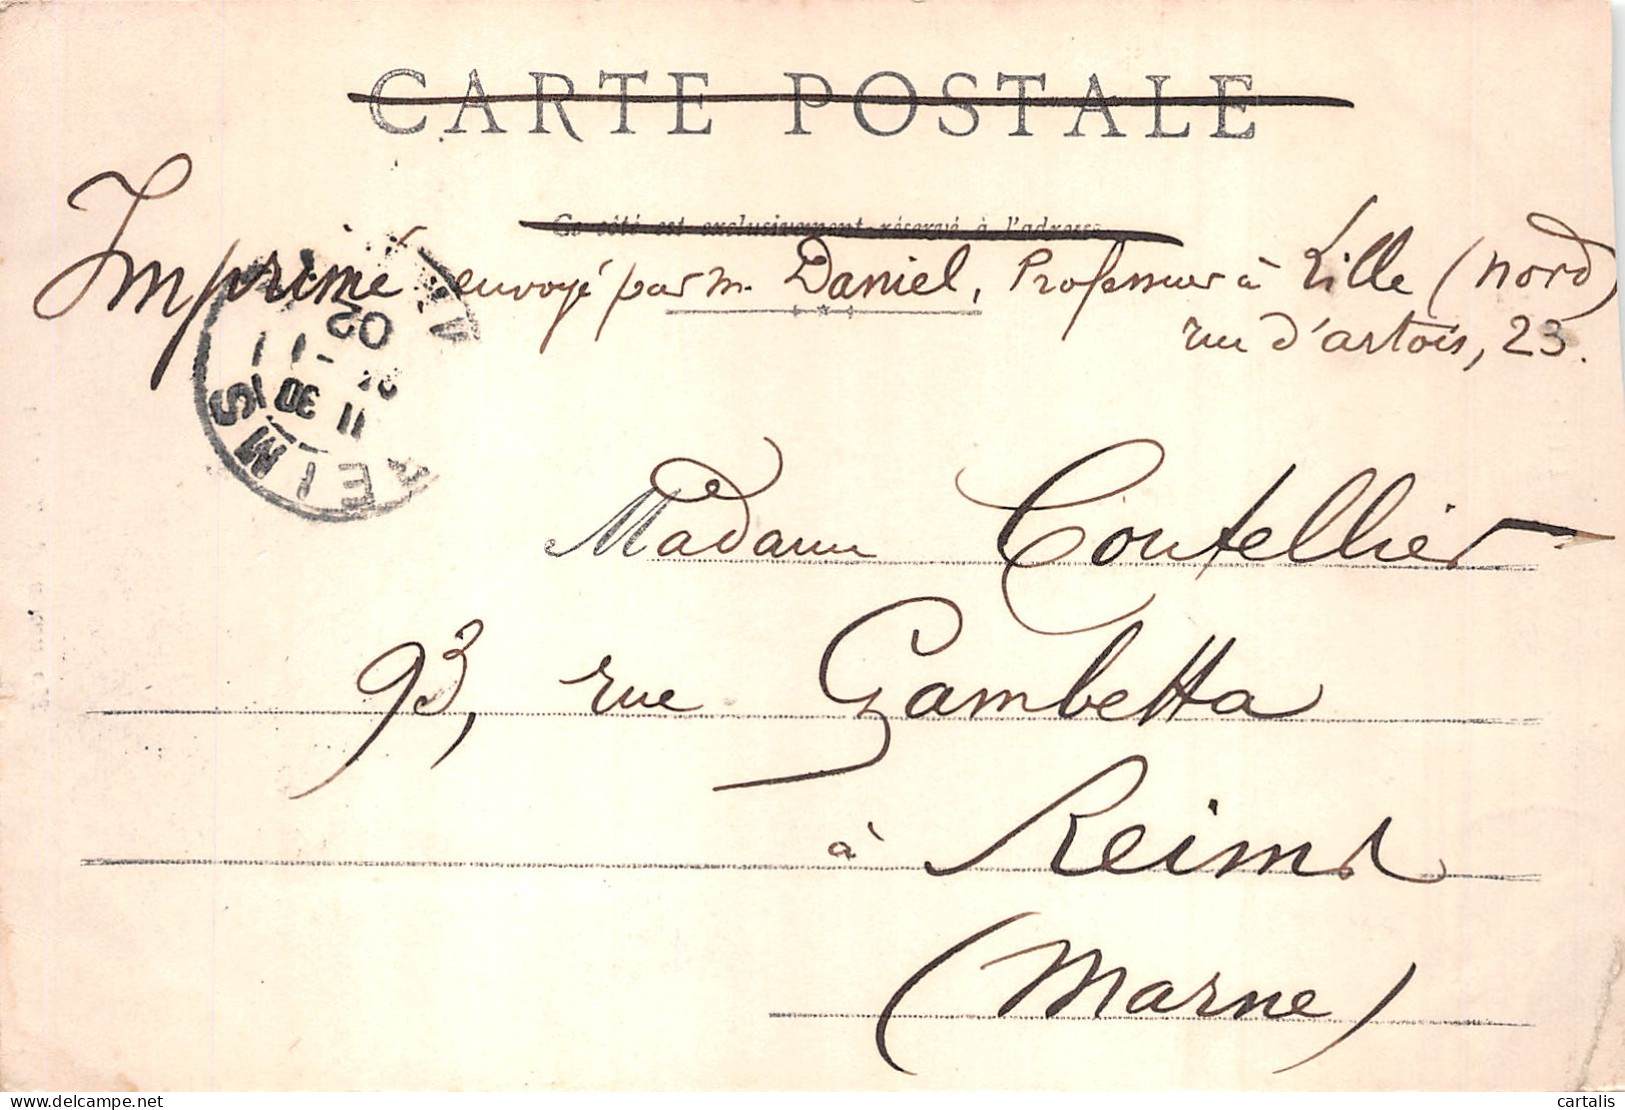 CARTE POSTALE
Ce côté est exclusivement réservé à l'adresse
Imprimé envoyé par M. Daniel, Professeur à Lille (Nord)
rue d'artois, 23.
REIMS
11 30
02
Madame Coutellier
93, rue Gambetta
à Reims
(Marne)
cartalis